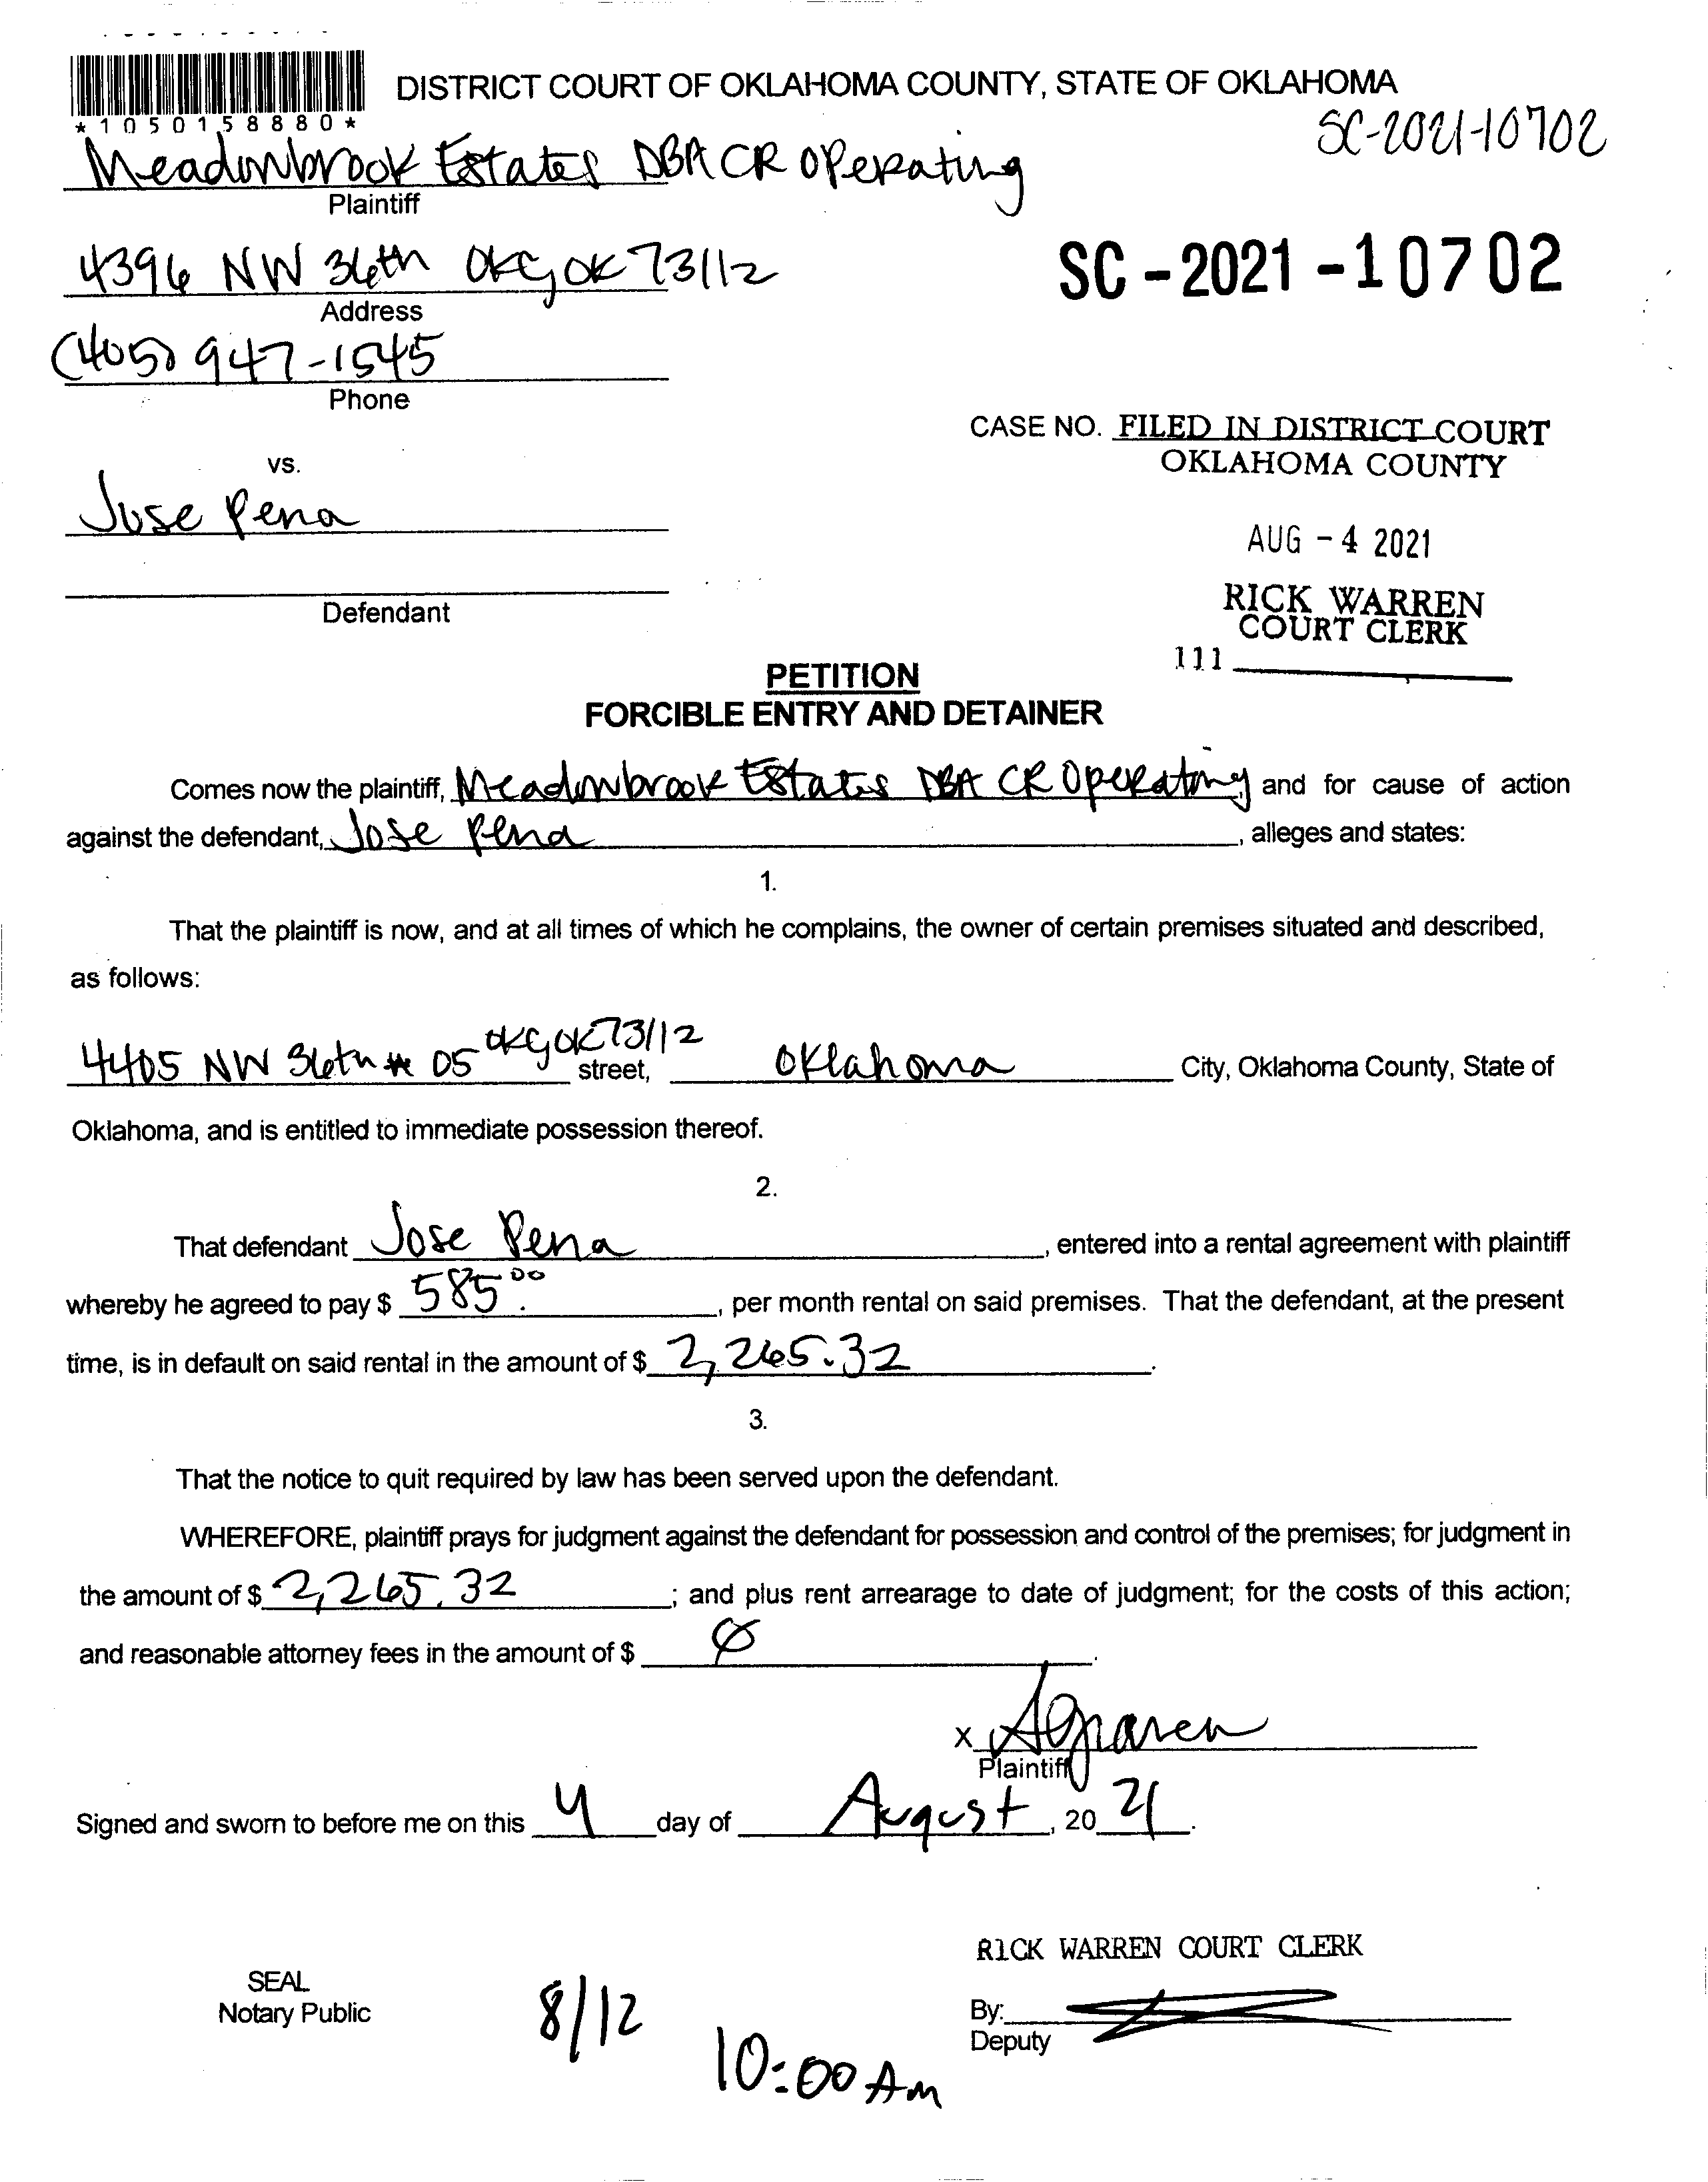 DISTRICT COURT OF OKLAHOMA COUNTY, STATE OF OKLAHOMA
*1050158880*
SC-2021-10702
Meadowbrook Estates DBA CR Operating
Plaintiff
4396 NW 36th OKC, OK 73112
Address
SC - 2021 - 10702
(405) 947-1545
Phone
CASE NO. FILED IN DISTRICT COURT
OKLAHOMA COUNTY
vs.
Jose Pena
AUG - 4 2021
Defendant
RICK WARREN
COURT CLERK
111
PETITION
FORCIBLE ENTRY AND DETAINER
Comes now the plaintiff, Meadowbrook Estates DBA CR Operating and for cause of action
against the defendant, Jose Pena, alleges and states:
1.
That the plaintiff is now, and at all times of which he complains, the owner of certain premises situated and described,
as follows:
4405 NW 36th # 05 OKC, OK 73112 street, Oklahoma City, Oklahoma County, State of
Oklahoma, and is entitled to immediate possession thereof.
2.
That defendant Jose Pena, entered into a rental agreement with plaintiff
whereby he agreed to pay $ 585.00, per month rental on said premises. That the defendant, at the present
time, is in default on said rental in the amount of $ 2,265.32.
3.
That the notice to quit required by law has been served upon the defendant.
WHEREFORE, plaintiff prays for judgment against the defendant for possession and control of the premises; for judgment in
the amount of $ 2,265.32; and plus rent arrearage to date of judgment; for the costs of this action;
and reasonable attorney fees in the amount of $ Ø.
X
Plaintiff
Signed and sworn to before me on this 4 day of August, 2021.
RICK WARREN COURT CLERK
SEAL
Notary Public
8/12
By:
Deputy
10:00 AM